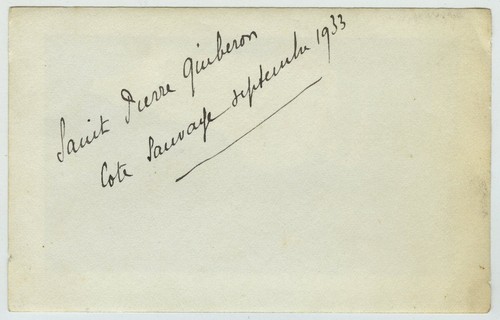 Saint Pierre Quiberon
Cote Sauvage septembre 1933